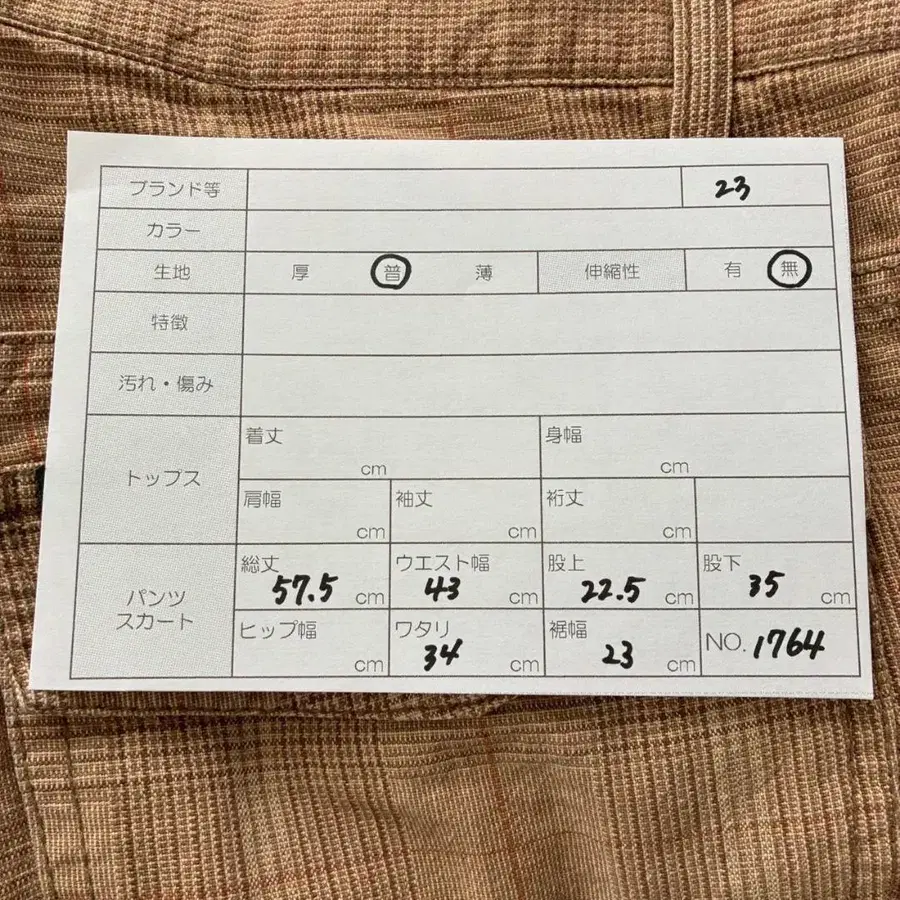 ブランド等 23
カラー
生地 厚 普 薄 伸縮性 有 無
特徴
汚れ・傷み
トップス
着丈 cm 身幅 cm
肩幅 cm 袖丈 cm 裄丈 cm
パンツ
スカート
総丈 57.5 cm ウエスト幅 43 cm 股上 22.5 cm 股下 35 cm
ヒップ幅 cm ワタリ 34 cm 裾幅 23 cm NO. 1764